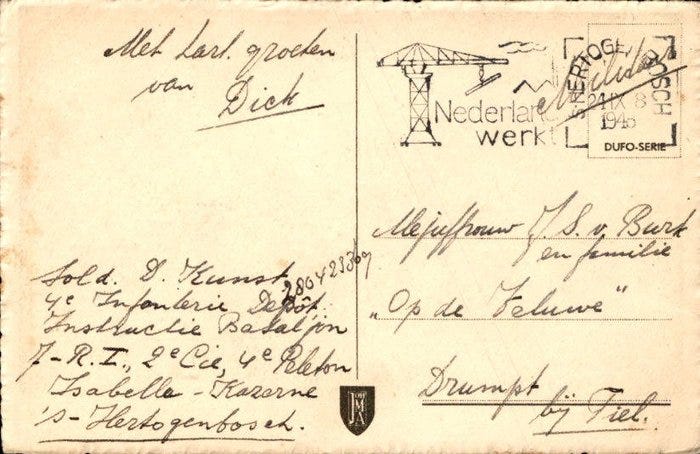 Met hart. groeten
van
Dick
Sold. D. Kunst
280423369
4e Infanterie Depôt
Instructie Bataljon
7-R.I., 2e Cie, 4e Peleton
Isabella-Kazerne
's-Hertogenbosch.
Nederland
werkt
S-HERTOGENBOSCH
24 IX 8
194
DUFO-SERIE
Militair
Mejuffrouw J. S. v. Burk
en familie
"Op de Veluwe"
Drumpt
bij Tiel.